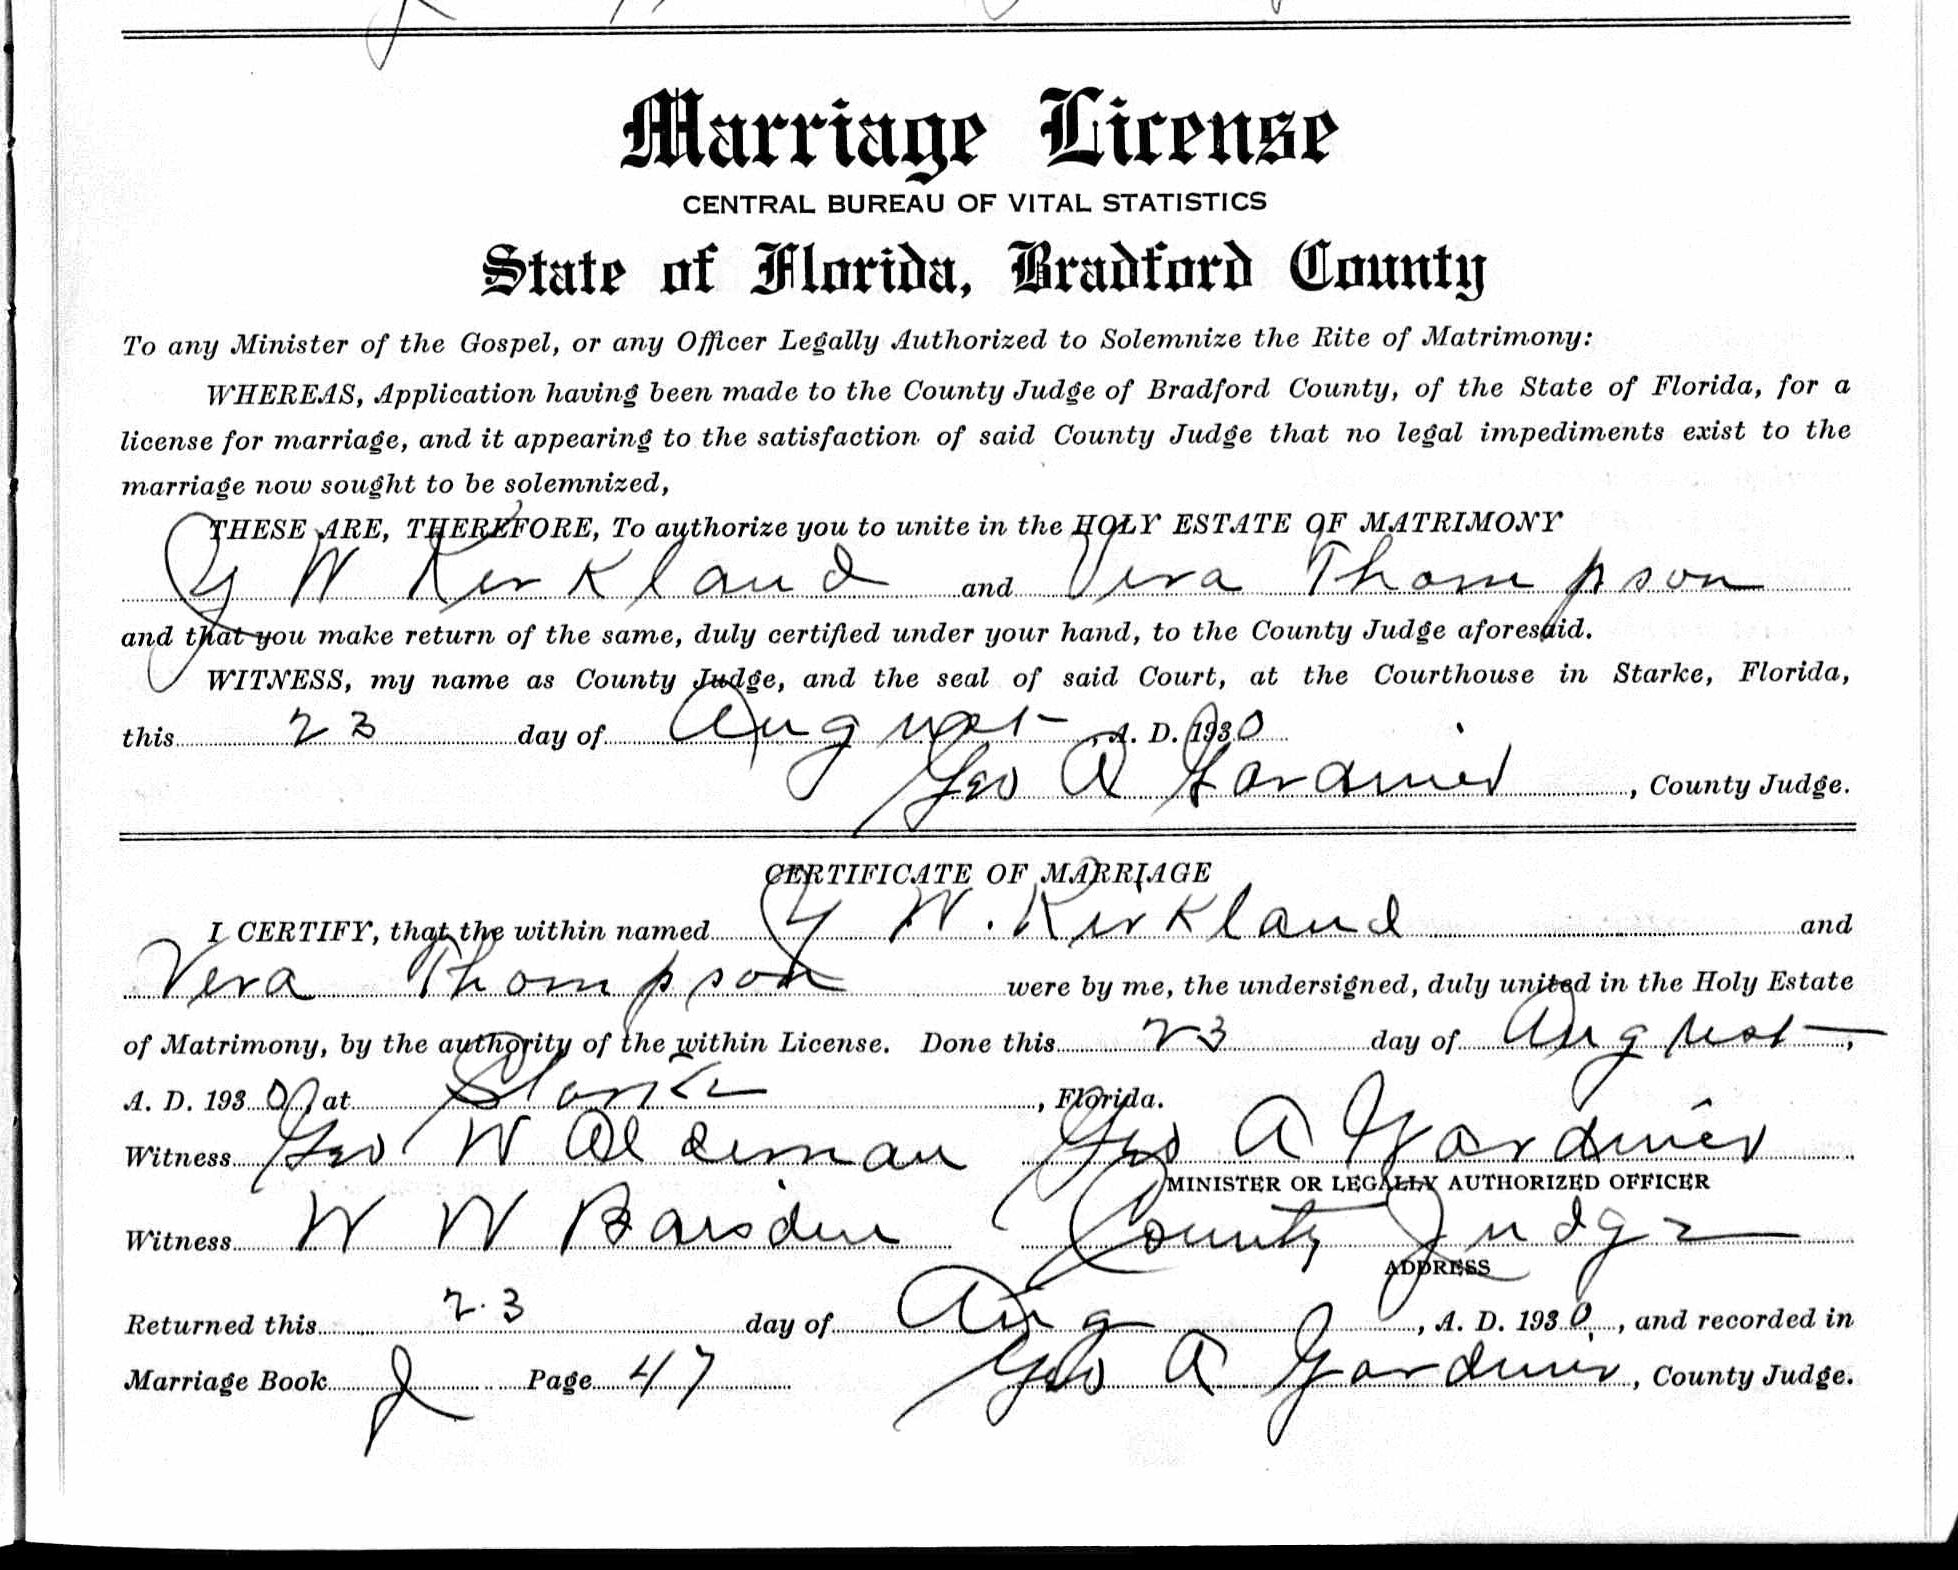 Marriage License
CENTRAL BUREAU OF VITAL STATISTICS
State of Florida, Bradford County
To any Minister of the Gospel, or any Officer Legally Authorized to Solemnize the Rite of Matrimony:
WHEREAS, Application having been made to the County Judge of Bradford County, of the State of Florida, for a
license for marriage, and it appearing to the satisfaction of said County Judge that no legal impediments exist to the
marriage now sought to be solemnized,
THESE ARE, THEREFORE, To authorize you to unite in the HOLY ESTATE OF MATRIMONY
Y W Kirkland and Vera Thompson
and that you make return of the same, duly certified under your hand, to the County Judge aforesaid.
WITNESS, my name as County Judge, and the seal of said Court, at the Courthouse in Starke, Florida,
this 23 day of August, A. D. 1930
Geo A Gardner, County Judge.
CERTIFICATE OF MARRIAGE
I CERTIFY, that the within named Y W. Kirkland and
Vera Thompson were by me, the undersigned, duly united in the Holy Estate
of Matrimony, by the authority of the within License. Done this 23 day of August,
A. D. 1930, at Starke, Florida.
Witness Geo W Alderman Geo A Gardner
MINISTER OR LEGALLY AUTHORIZED OFFICER
Witness W W Baisden County Judge
ADDRESS
Returned this 23 day of Aug, A. D. 1930, and recorded in
Marriage Book J Page 47 Geo A Gardner, County Judge.